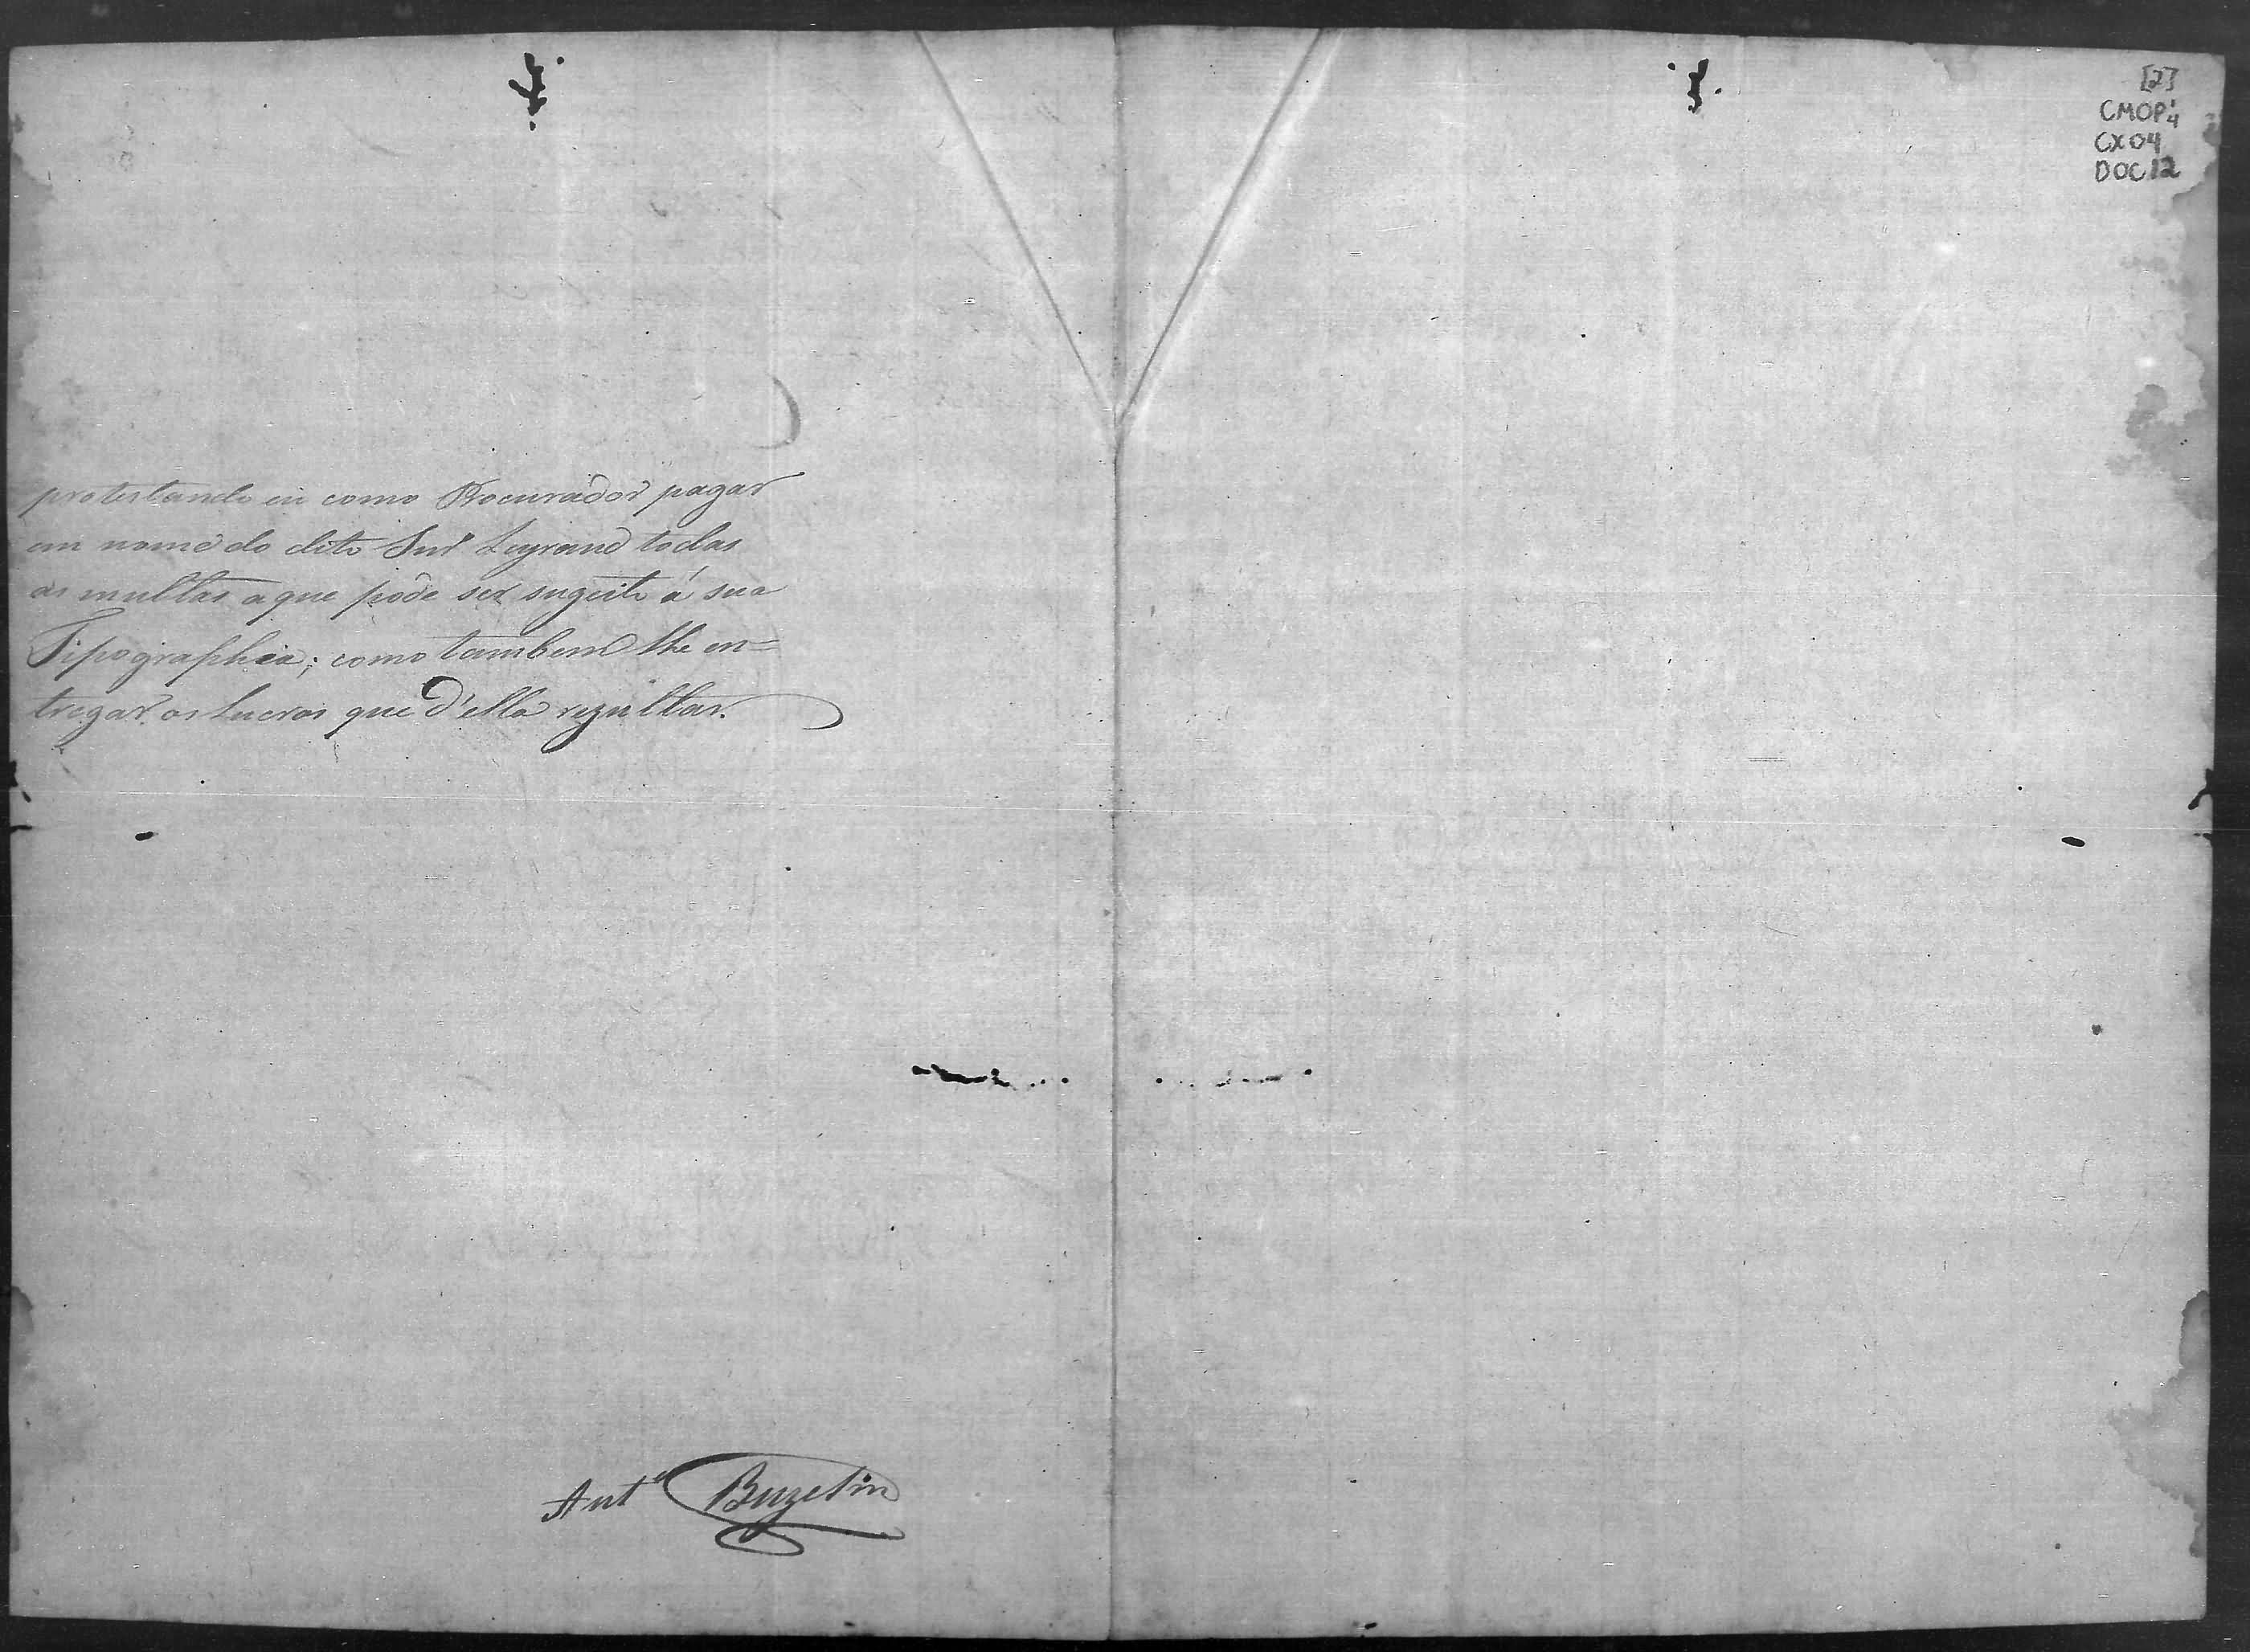 protestando eu como Procurador pagar
em nome do dito Snr Legrand todas
as multas a que póde ser sugeito á sua
Tipographia; como tambem lhe en=
tregar os Lucros que d'ella rezultar.
Ant.e Buzelin
[2]
CMOP
CX04
DOC12